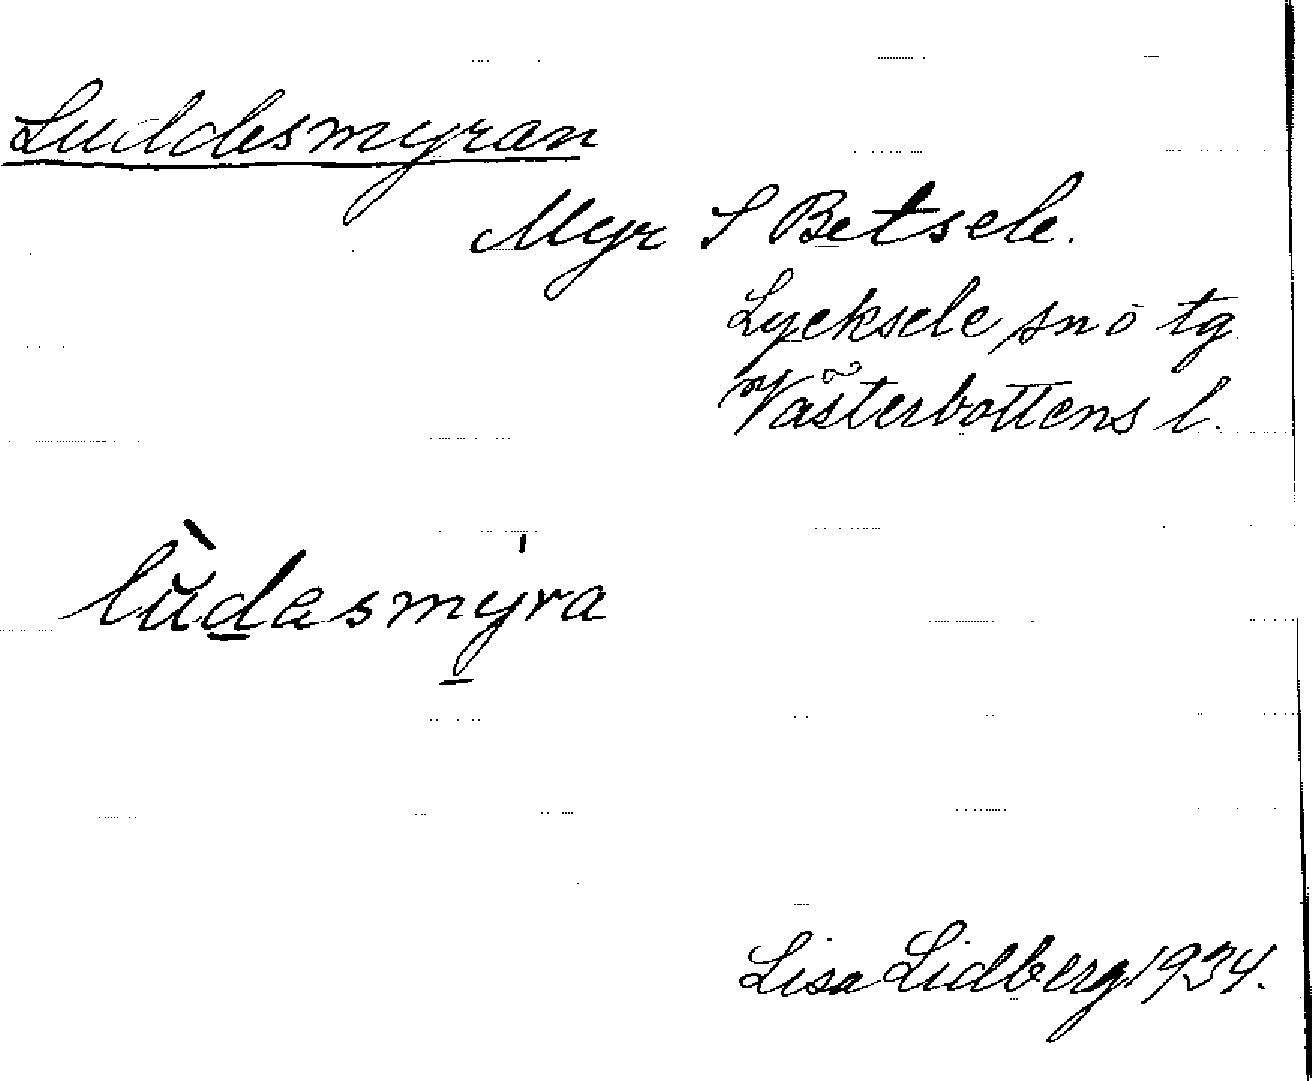 Luddesmyran
Myr S Betsele.
Lycksele sn o tg
Västerbottens l.
lùdasmy̱ra
Lisa Lidberg 1934.